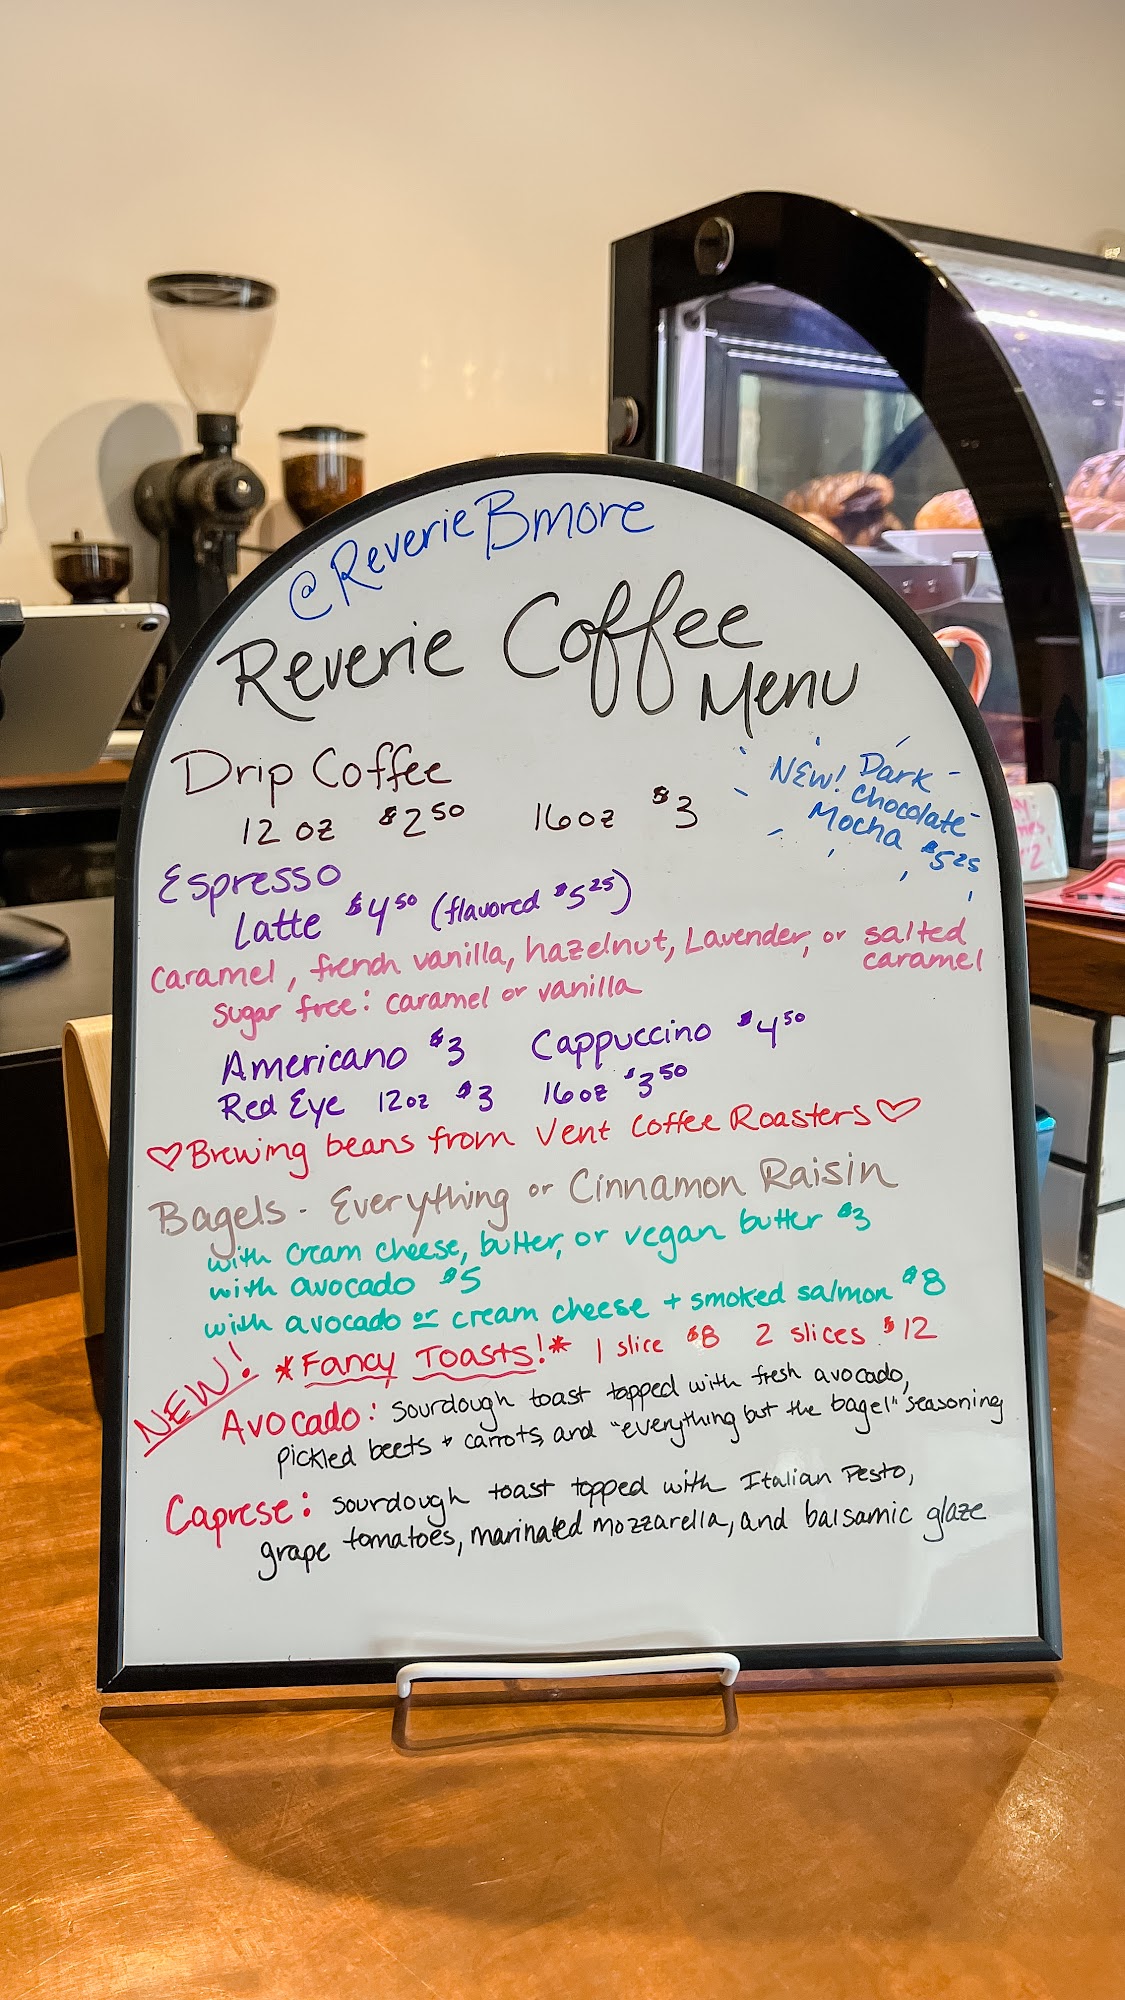 @ReverieBmore
Reverie Coffee
Menu
Drip Coffee
12 oz $2.50 16oz $3
NEW! Dark
Chocolate
Mocha $5.25
Espresso
Latte $4.50 (flavored $5.25)
caramel, french vanilla, hazelnut, Lavender, or salted
caramel
sugar free: caramel or vanilla
Americano $3 Cappuccino $4.50
Red Eye 12oz $3 16oz $3.50
♡Brewing beans from Vent Coffee Roasters♡
Bagels - Everything or Cinnamon Raisin
with cream cheese, butter, or vegan butter $3
with avocado $5
with avocado or cream cheese + smoked salmon $8
NEW! *Fancy Toasts!* 1 slice $8 2 slices $12
Avocado: sourdough toast topped with fresh avocado,
pickled beets + carrots, and "everything but the bagel" seasoning
Caprese: sourdough toast topped with Italian Pesto,
grape tomatoes, marinated mozzarella, and balsamic glaze